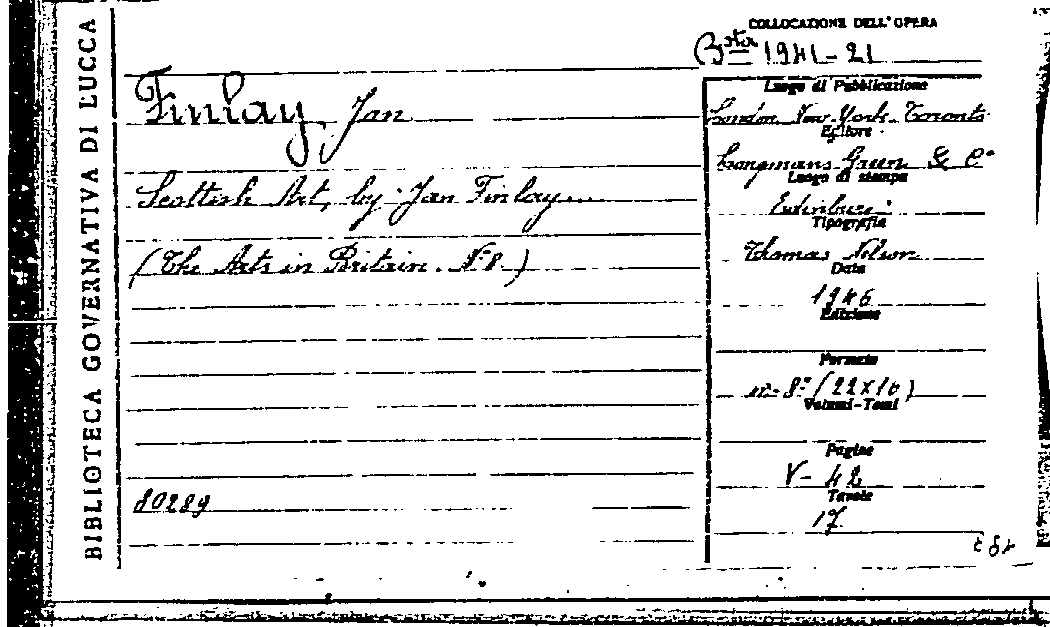 BIBLIOTECA GOVERNATIVA DI LUCCA
COLLOCAZIONE DELL'OPERA
B.sta 1941-21
Finlay, Jan
Scottish Art, by Jan Finlay
(The Arts in Britain. N.º 8.)
80289
Luogo di Pubblicazione
London New-York Toronto
Editore
Longmans Green & C.º
Luogo di stampa
Tipografia
Thomas Nelson
Data
1946
Edizione
Formato
in-8º (22x16)
Volumi-Tomi
Pagine
V-42
Tavole
17